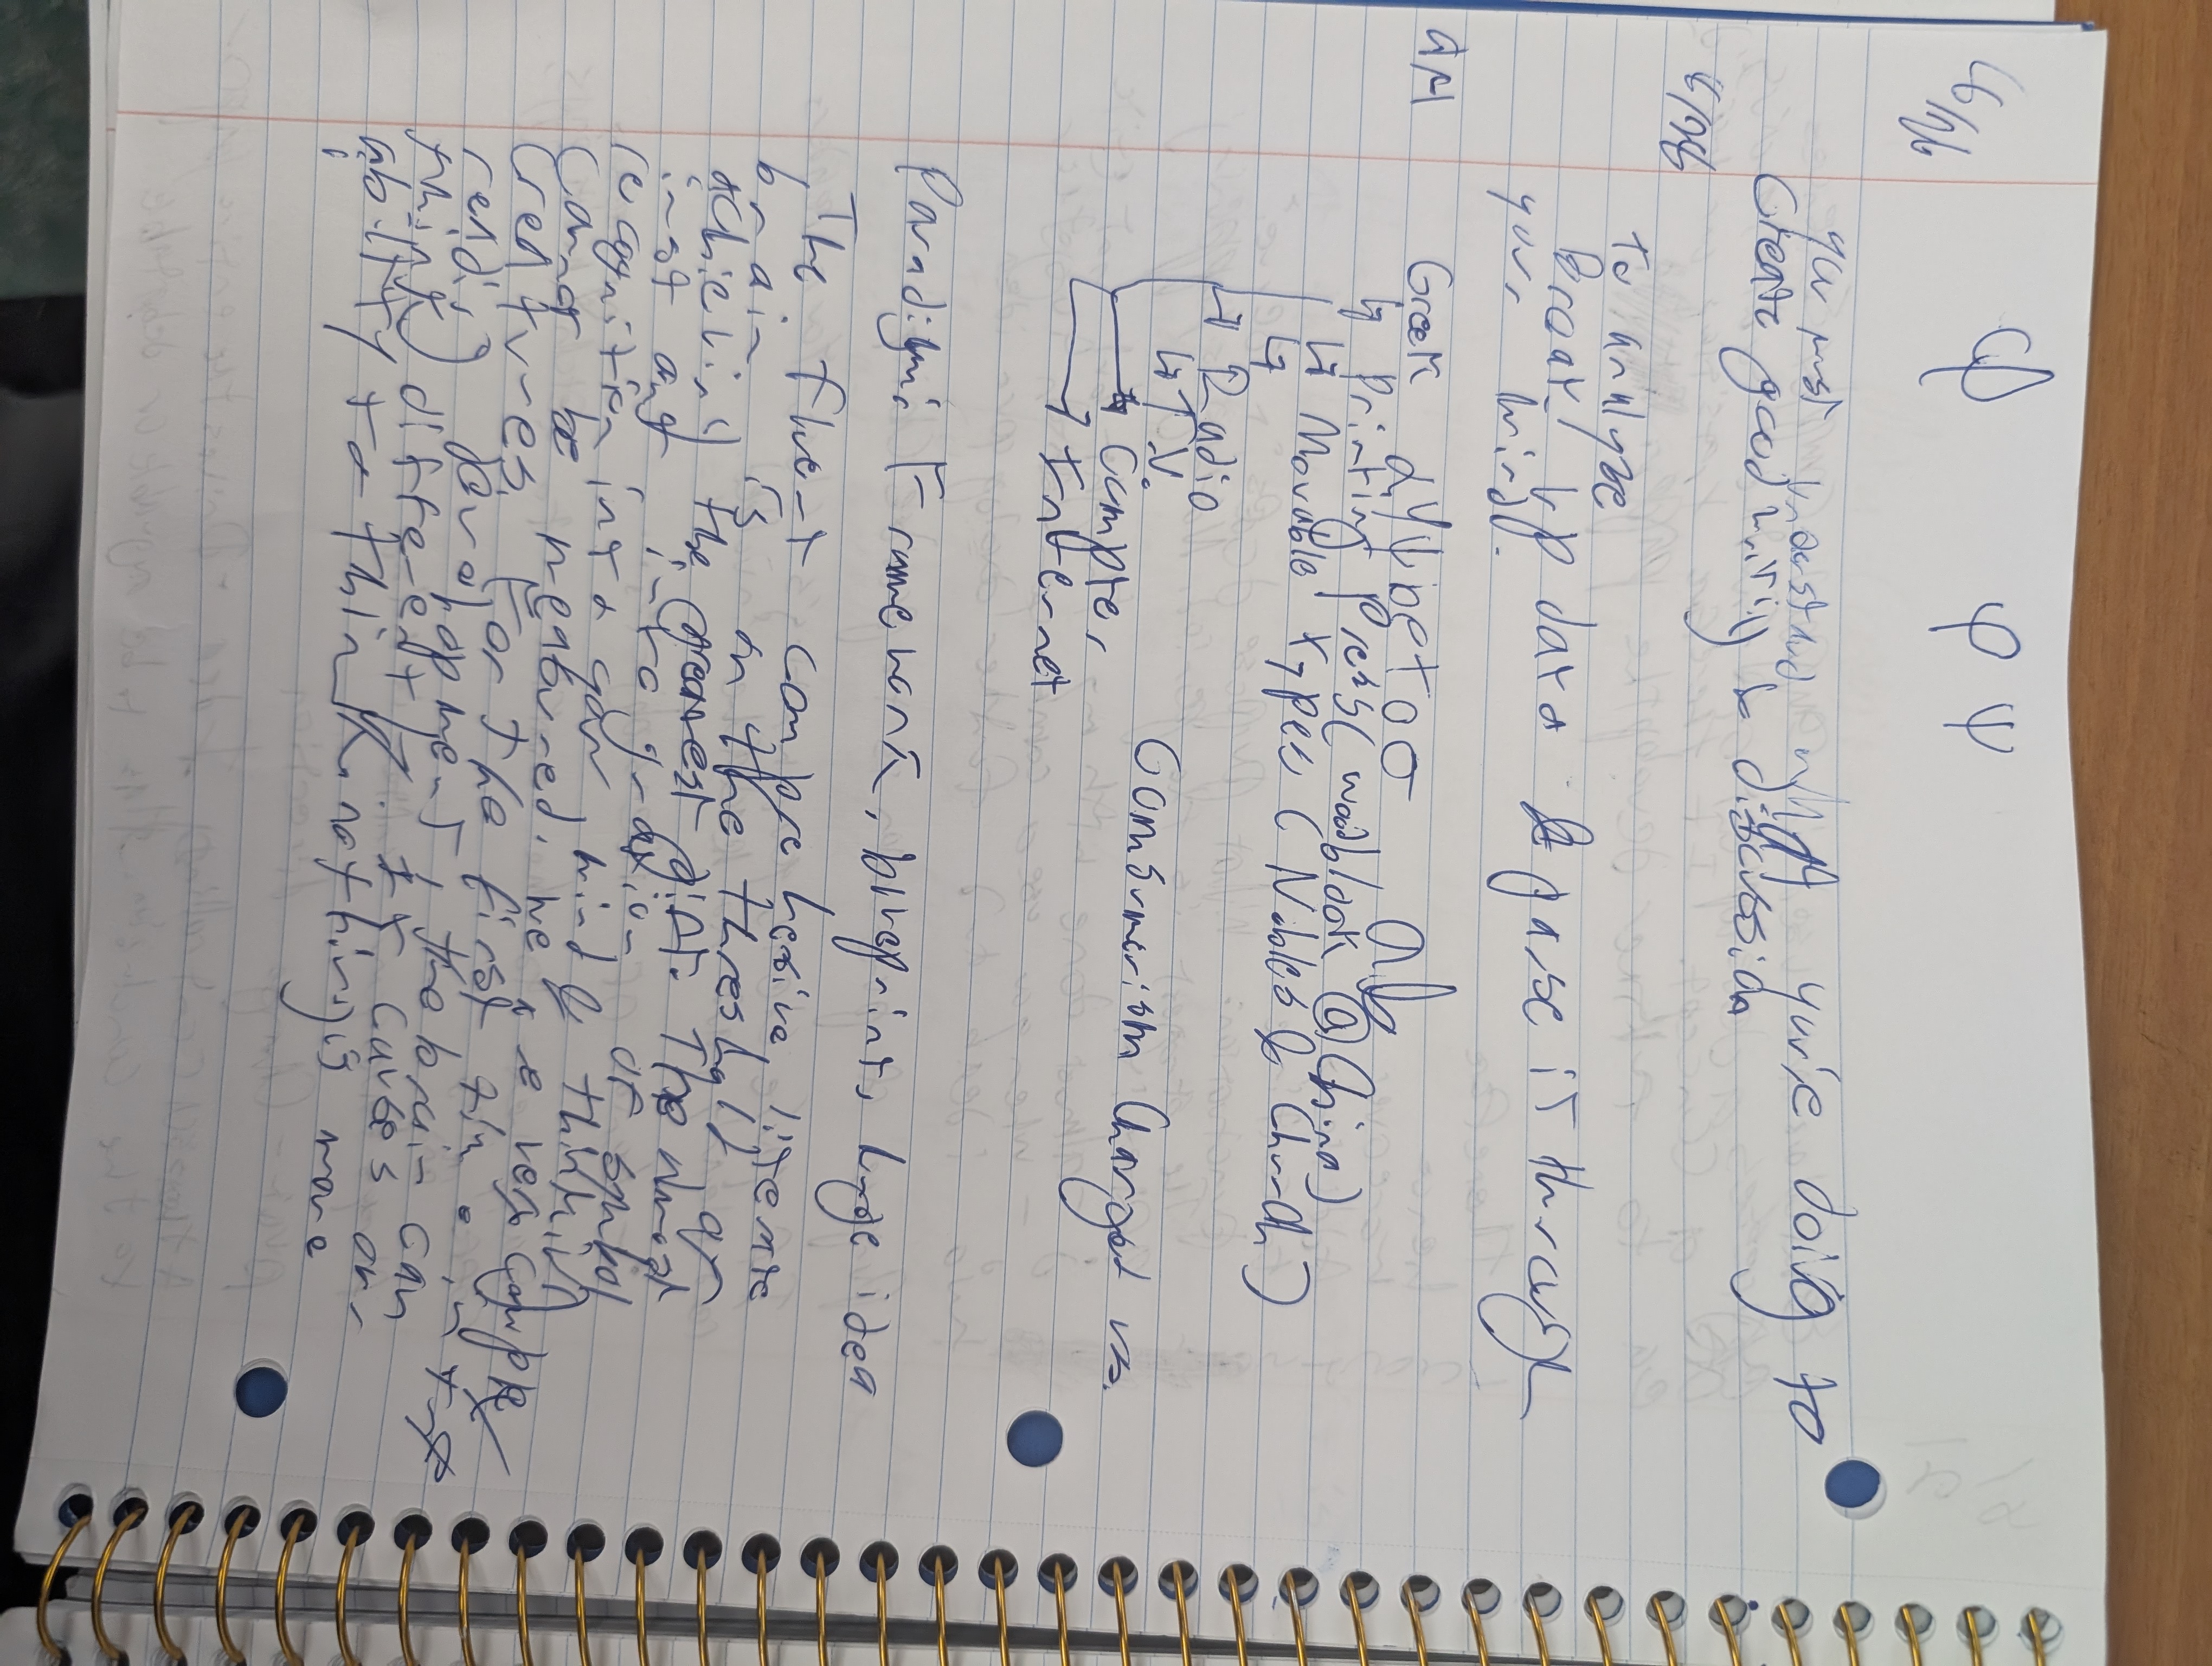 8/26
φ φ ψ
you must understand what you're doing to
Create good writing & discussion
8/28
To analyze
Break up data & parse it through
your mind.
Greek ab
↳ Printing Press (woodblook @ China)
↳ Movable types (Nobles & Church)
↳
→ Radio
↳ T.V.
→ Compter
Comsumerism Changed vs.
→ Internet
Paradigm: Framework, blueprint, huge idea
The fluent comprehesive, literate
brain is on the threshold of
achieving the greatest gift. The almost
inst intogration of symbol
recognition into your mind & thinking
Cannot be measured. we are very complex
Creatures. For the first time in
reading development, the brain can
think differently. It causes our
ability to think. nothing is more